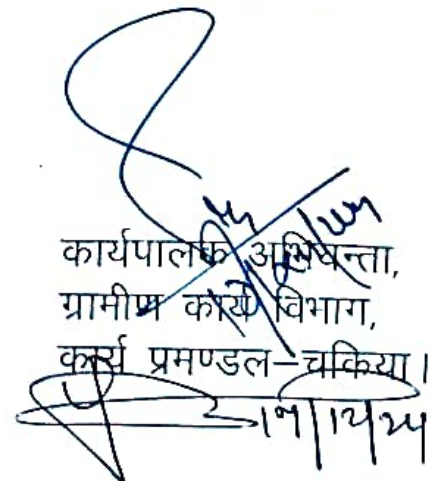 कार्यपालक अभियन्ता,
ग्रामीण कार्य विभाग,
कार्य प्रमण्डल-चकिया।